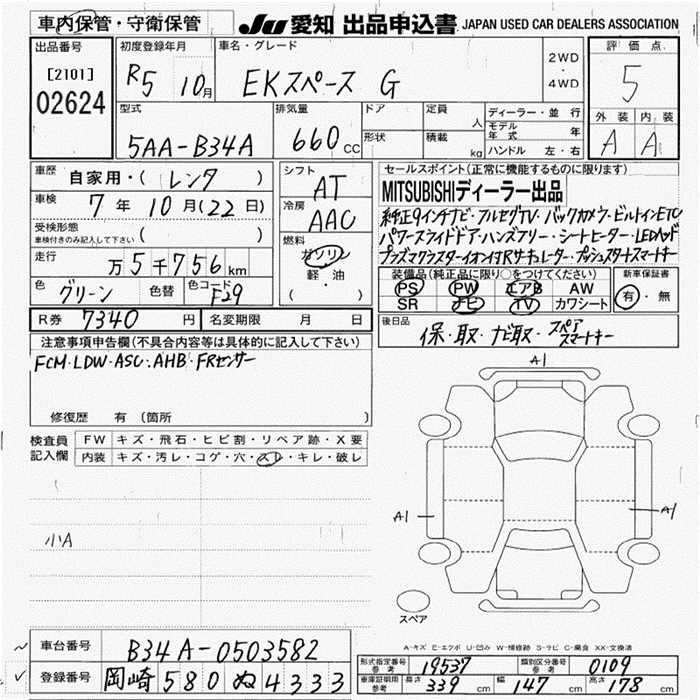 車内保管・守衛保管
JU 愛知 出品申込書 JAPAN USED CAR DEALERS ASSOCIATION
出品番号
[2101]
02624
初度登録年月
R5 10月
車名・グレード
EKスペース G
2WD
・
4WD
評価点
5
外装 内装
A A
型式
5AA-B34A
排気量
660cc
ドア
形状
定員 人
積載 kg
ディーラー・並行
モデル年式 年
ハンドル 左・右
車歴
自家用・( レンタ )
車検
7年 10月(22日)
受検形態
車検付きのみ記入して下さい ( )
走行
万5千756km
色 グリーン 色替 色コード F29
シフト
AT
冷房
AAC
燃料
ガソリン
軽・油
( )
セールスポイント(正常に機能するものに限ります)
MITSUBISHIディーラー出品
純正9インチナビ・フルセグTV・バックカメラ・ビルトインETC
パワースライドドア・ハンズフリー・シートヒーター・LEDヘッド
プラズマクラスターイオン付Rサーキュレーター・プッシュスタートスマートキー
装備品(純正品に限り○をつけてください)
PS PW エアB AW
SR ナビ TV カワシート
新車保証書
有・無
R券 7340円 名変期限 月 日
後日品
保・取・ナビ取・スペアスマートキー
注意事項申告欄(不具合内容等は具体的に記入して下さい)
FCM・LDW・ASC・AHB・FRセンサー
修復歴 有(箇所 )
検査員
記入欄
FW キズ・飛石・ヒビ割・リペア跡・X要
内装 キズ・汚レ・コゲ・穴・スレ・キレ・破レ
小A
A1
A1
A1
スペア
A-キズ E-エクボ U-凹み W-補修跡 S-サビ C-腐食 XX-交換済
車台番号 B34A-0503582
登録番号 岡崎 580 ぬ 4333
形式指定番号 参考 19537 類別区分番号 参考 0109
車庫証明用 参考 長さ 339cm 幅 147cm 高さ 178cm